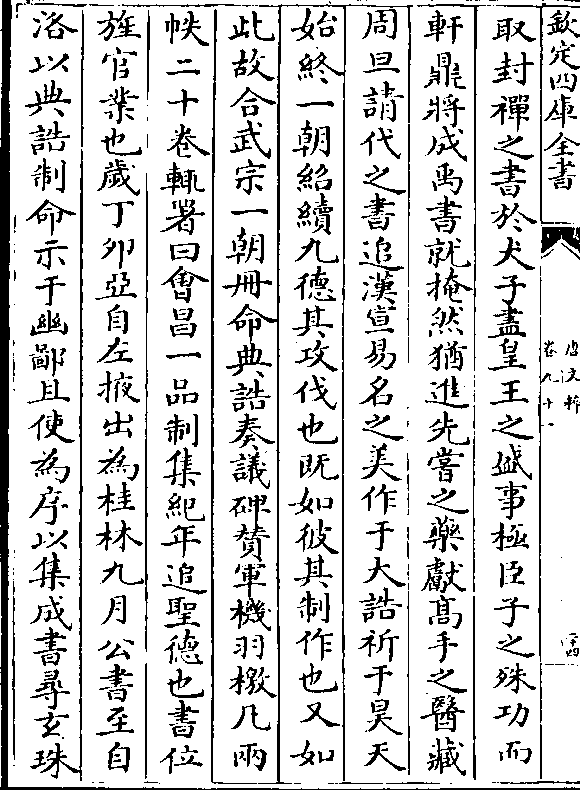 欽定四庫全書
唐文粹
卷九十一
二十四
取封禪之書於犬子盡皇王之盛事極臣子之殊功而
軒鼎將成禹書就掩然猶進先嘗之藥獻高手之醫藏
周旦請代之書追漢宣易名之美作于大誥祈于昊天
始終一朝紹續九德其攻伐也既如彼其制作也又如
此故合武宗一朝冊命典誥奏議碑賛軍機羽檄凡兩
帙二十卷輒署曰會昌一品制集紀年追聖德也書位
旌官業也歲丁卯亞自左掖出為桂林九月公書至自
洛以典誥制命示于幽鄙且使為序以集成書尋玄珠